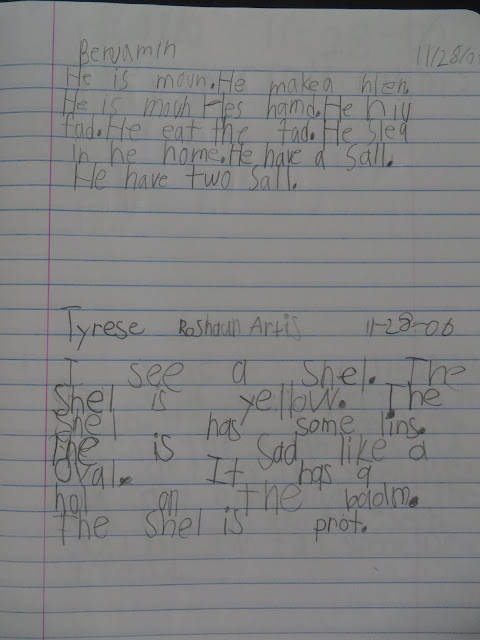 Benjamin 11/28/0
He is movn. He makea hlen.
He is movh Hes hamd. He hiy
fad. He eat the fad. He slea
in he home. He have a Sall.
He have two Sall.
Tyrese RoShaun Artis 11-28-06
I see a Shel. The
Shel is yellow. The
Shel has some lins.
The is Sad like a
Oval. It has a
hol on The badm.
The Shel is prot.